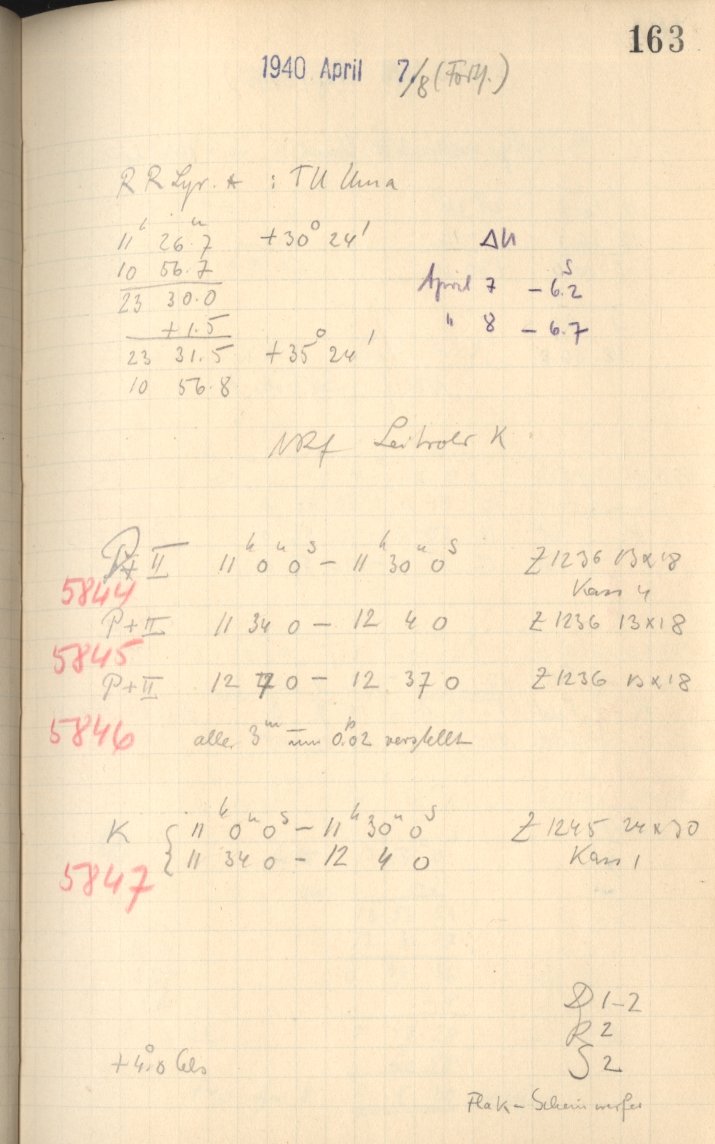 163
1940 April 7/8 (Forts.)
RR Lyr. * : TU Uma
11ʰ 26ᵐ.7 +30° 24'
10 56.7
23 30.0
+1.5
23 31.5 +35° 24'
10 56.8
ΔU
April 7 -6.2ˢ
" 8 -6.7
Leitrohr K
P+II 11ʰ 0ᵐ 0ˢ - 11ʰ 30ᵐ 0ˢ Z1236 13x18
5844 Kass 4
P+II 11 34 0 - 12 4 0 Z1236 13x18
5845
P+II 12 7 0 - 12 37 0 Z1236 13x18
5846 alle 3ᵐ um 0.02 verstellt
K { 11ʰ 0ᵐ 0ˢ - 11ʰ 30ᵐ 0ˢ Z1245 24x30
11 34 0 - 12 4 0 Kass 1
5847
D 1-2
R 2
S 2
+4°.0 Cels
Flak-Scheinwerfer